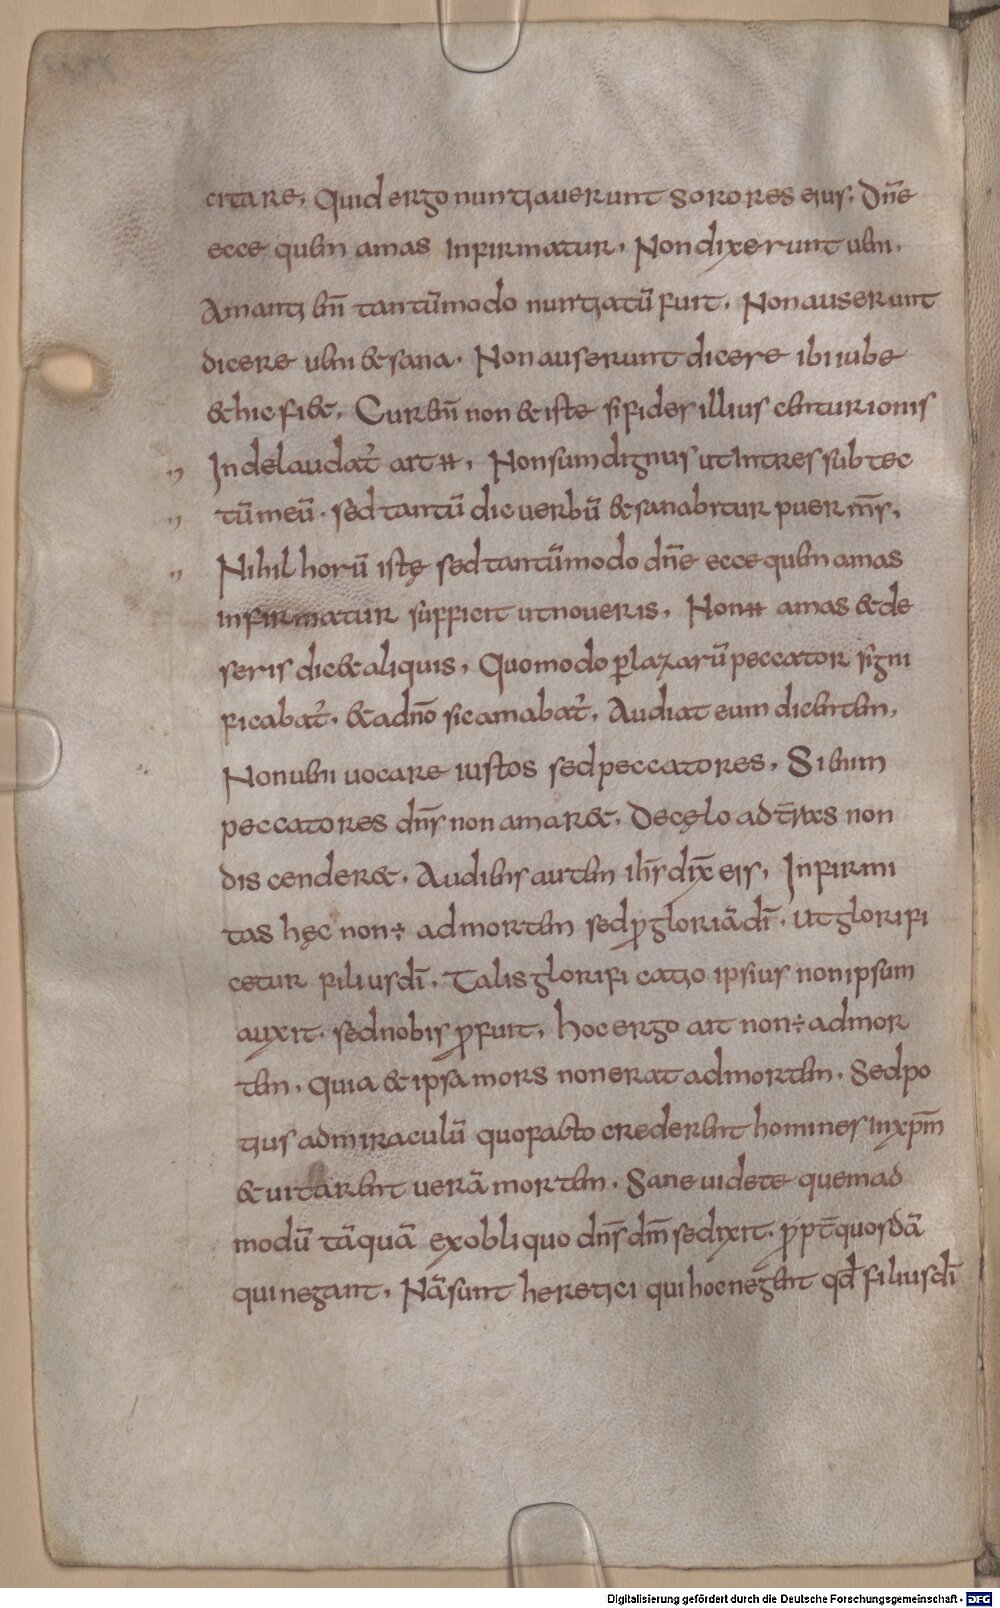 citare. Quid ergo nuntiauerunt sorores eius. Dn̄e
ecce quem amas infirmatur. Non dixerunt ueni.
Amanti eni̅ tantu̅modo nuntiatu̅ fuit. Non auserunt
dicere ueni & sana. Non auserunt dicere ibi iube
& hic fi&. Cur eni̅ non & iste si fides illius centurionis
" Inde laudat᷑ ait H. Non sum dignus ut intres sub tec
" tu̅ meu̅. sed tantu̅ dic uerbu̅ & sanabitur puer m̅s.
" Nihil horu̅ istę sed tantu̅modo dn̄e ecce quem amas
infirmatur sufficit ut noueris. Non H amas & de
seris dic& aliquis. Quomodo p̲ lazaru̅ peccator signi
ficabat᷑. & a dn̅o sic amabat᷑. Audiat eum dicentem.
Non ueni uocare iustos sed peccatores. Si enim
peccatores dn̅s non amar&. De cęlo ad t̅ras non
discender&. Audiens autem ih̅s dix̅ eis. Infirmi
tas hęc non ÷ ad mortem sed ꝓ gloria̅ dī. ut glorifi
cetur filius dī. Talis glorificatio ipsius non ipsum
auxit. sed nobis ꝓfuit. hoc ergo ait non ÷ ad mor
tem. quia & ipsa mors non erat ad mortem. Sed po
tius ad miraculu̅ quo facto crederent homines in xp̅m
& uitarent uera̅ mortem. Sane uidete quemad
modu̅ ta̅qua̅ ex obliquo dn̅s dm̅ se dixit. ꝓpt̅ quosda̅
qui negant. Na̅ sunt heretici qui hoc negent qd̅ filius dī
Digitalisierung gefördert durch die Deutsche Forschungsgemeinschaft - DFG